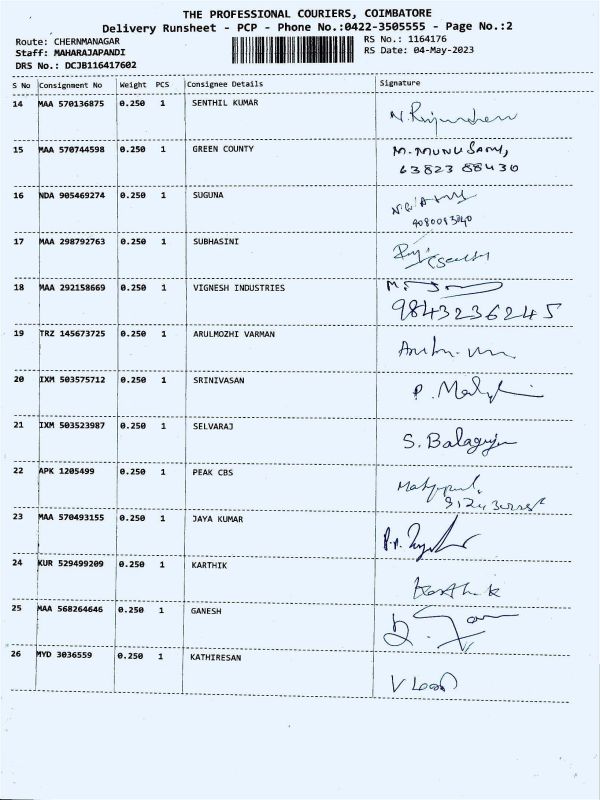 THE PROFESSIONAL COURIERS, COIMBATORE
Delivery Runsheet - PCP - Phone No.:0422-3505555 - Page No.:2
Route: CHERNMANAGAR RS No.: 1164176
Staff: MAHARAJAPANDI RS Date: 04-May-2023
DRS No.: DCJB116417602
S No Consignment No Weight PCS Consignee Details Signature
14 MAA 570136875 0.250 1 SENTHIL KUMAR
15 MAA 570744598 0.250 1 GREEN COUNTY M. MUNUSAMY,
63823 88430
16 NDA 905469274 0.250 1 SUGUNA
17 MAA 298792763 0.250 1 SUBHASINI
18 MAA 292158669 0.250 1 VIGNESH INDUSTRIES
9843236245
19 TRZ 145673725 0.250 1 ARULMOZHI VARMAN
20 IXM 503575712 0.250 1 SRINIVASAN
21 IXM 503523987 0.250 1 SELVARAJ S. Balaguju
22 APK 1205499 0.250 1 PEAK CBS
23 MAA 570493155 0.250 1 JAYA KUMAR
24 KUR 529499209 0.250 1 KARTHIK Karthik
25 MAA 568264646 0.250 1 GANESH
26 MYD 3036559 0.250 1 KATHIRESAN